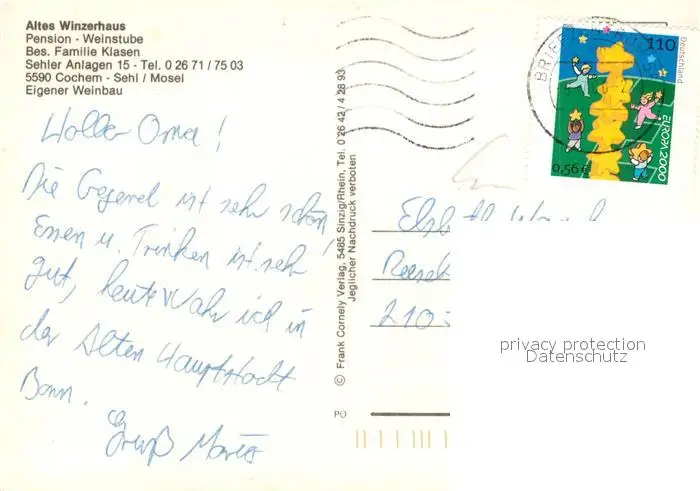 Altes Winzerhaus
Pension - Weinstube
Bes. Familie Klasen
Sehler Anlagen 15 - Tel. 0 26 71 / 75 03
5590 Cochem - Sehl / Mosel
Eigener Weinbau
Hallo Oma!
Die Gegend ist sehr schön
Essen u. Trinken ist sehr
gut, heute Wahr ich in
der Alten Hauptstadt
Bonn.
Gruß
© Frank Cornely Verlag, 5485 Sinzig/Rhein, Tel. 0 26 42 / 4 28 93
Jeglicher Nachdruck verboten
BRIEF
110
Deutschland
EUROPA 2000
0,56 €
210
privacy protection
Datenschutz
PO